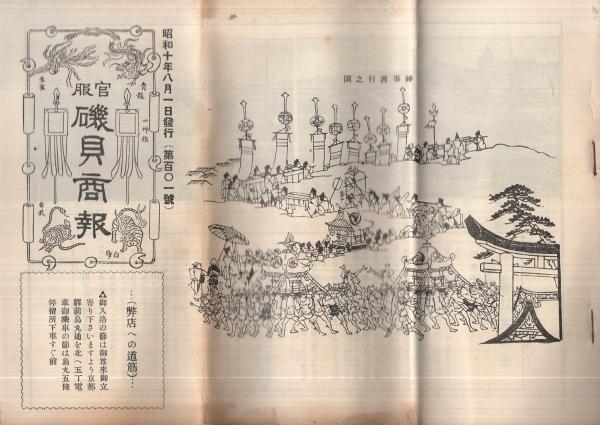 神事渡行之圖
昭和十年八月一日發行（第百〇一號）
官服
磯貝商報
朱雀
青龍
四神旗
玄武
白虎
…（弊店への道筋）…
御入洛の節は御尋來御立
寄り下さいますよう京都
驛前烏丸通を北へ五丁電
車御乘車の節は烏丸五條
停留所下車すぐ前